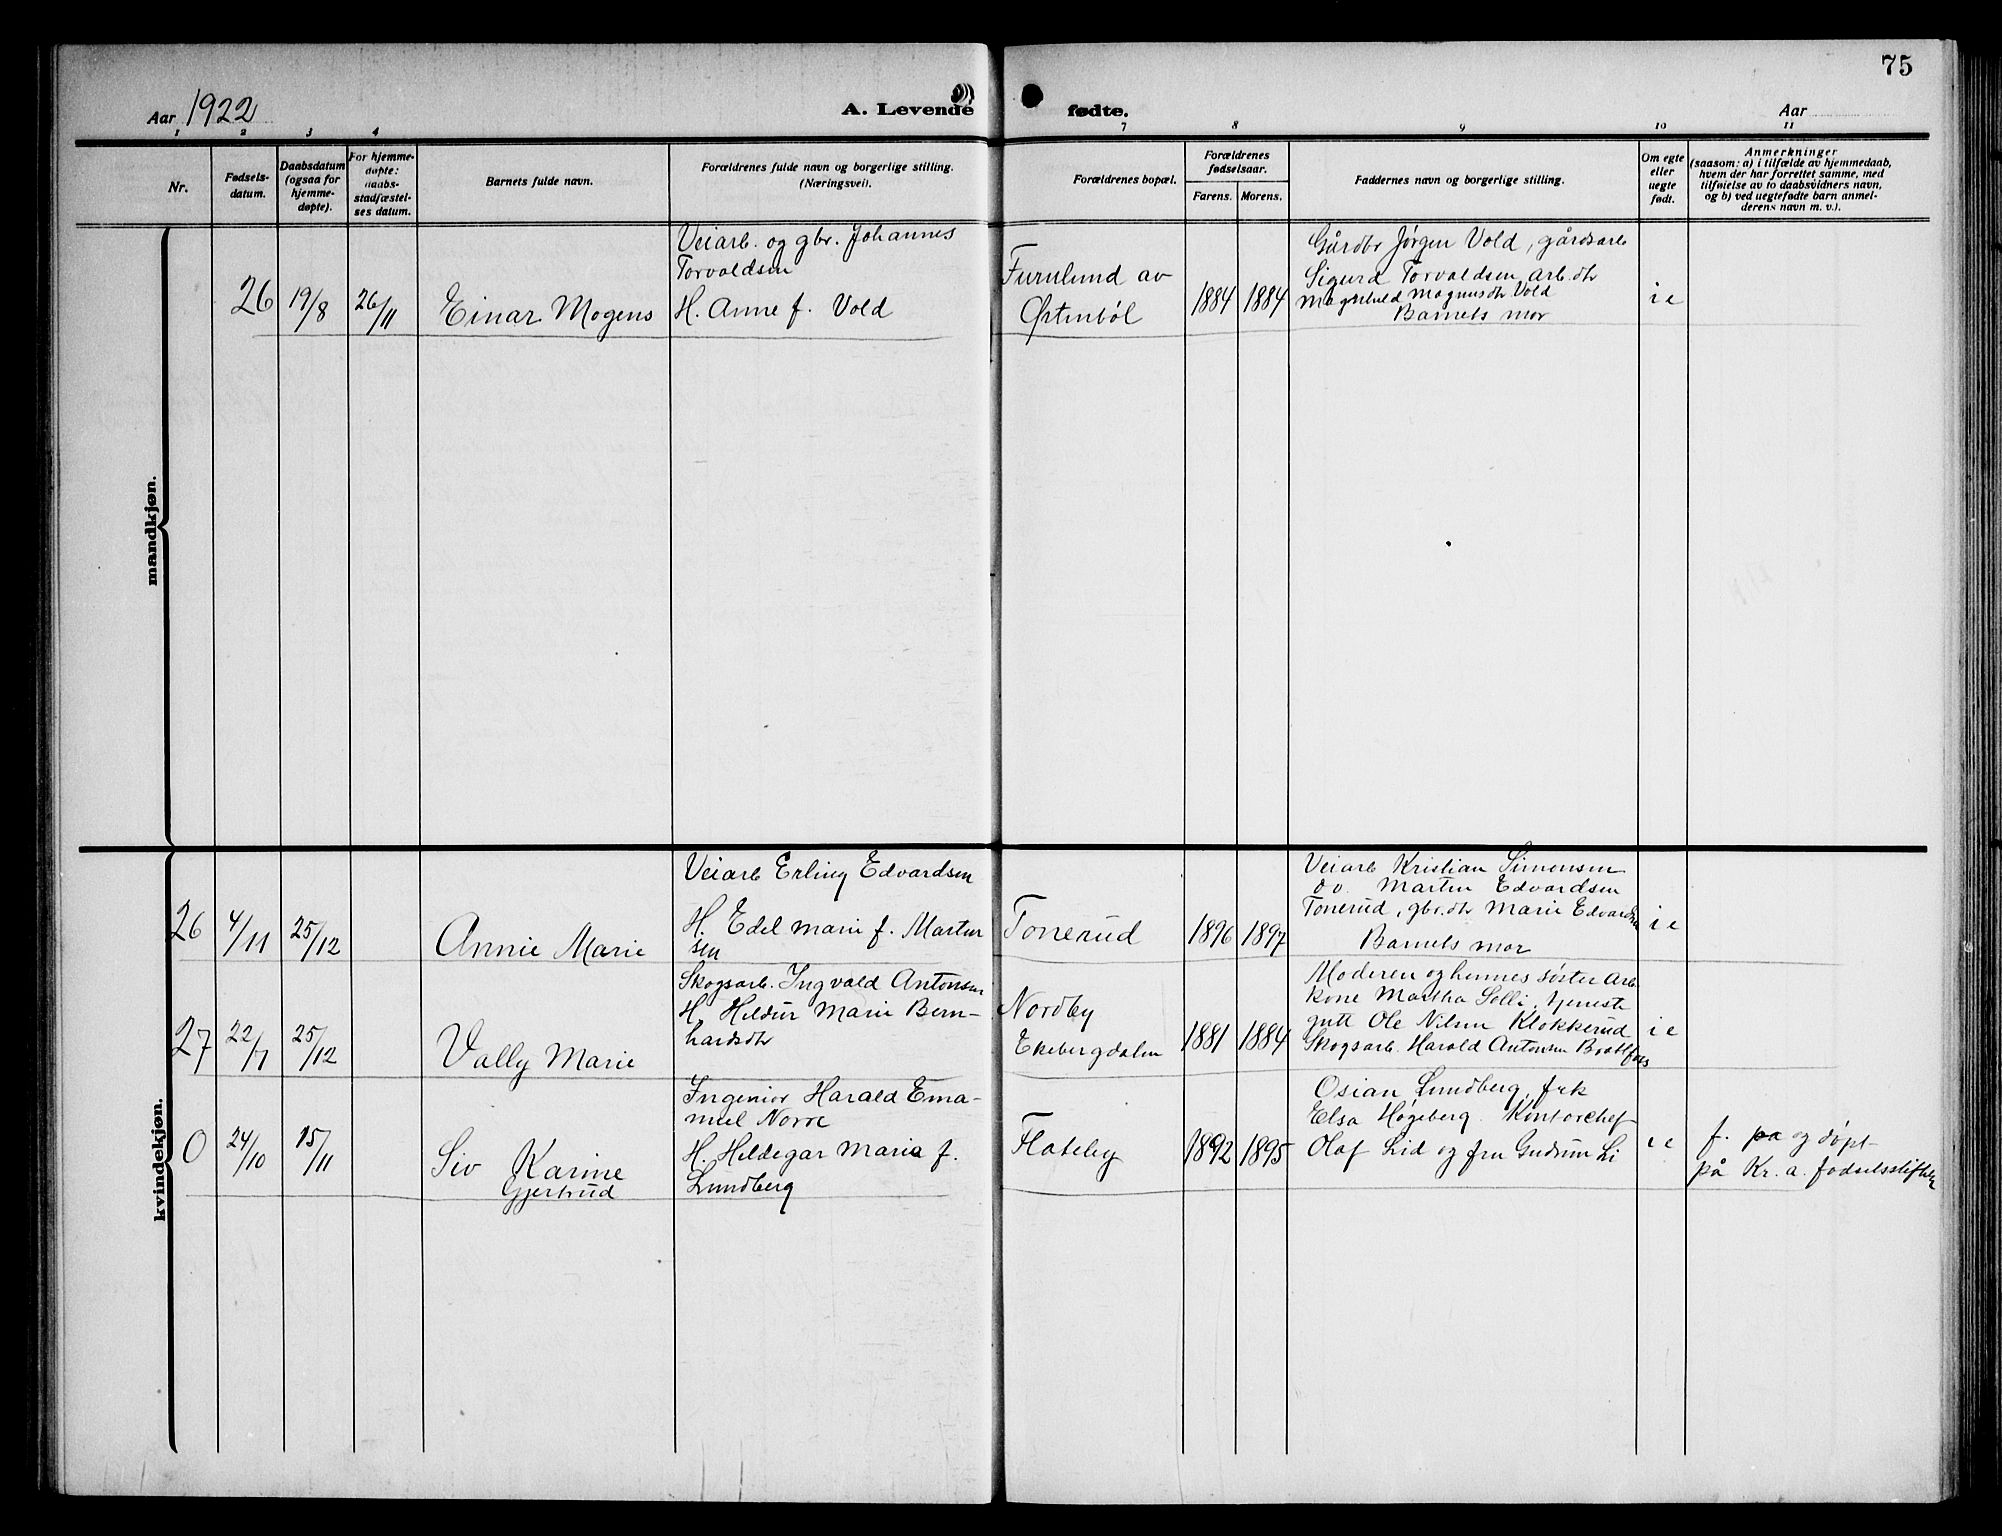 75
Aar 1922
A. Levende fødte.
Aar
1 2 3 4 7 8 9 10 11
Nr.
Fødsels-
datum.
Daabsdatum
(ogsaa for
hjemme-
døpte).
For hjemme-
døpte:
daabs-
stadfæstel-
ses datum.
Barnets fulde navn.
Forældrenes fulde navn og borgerlige stilling.
(Næringsvei).
Forældrenes bopæl.
Forældrenes
fødselsaar.
Farens. Morens.
Faddernes navn og borgerlige stilling.
Om egte
eller
uegte
født.
Anmerkninger
(saasom: a) i tilfælde av hjemmedaab,
hvem der har forrettet samme, med
tilføielse av to daabsvidners navn,
og b) ved uegtefødte barn anmel-
derens navn m. v.).
mandkjøn.
26 19/8 26/11
Einar Mogens
Veiarb. og gbr. Johannes
Torvaldsen
H. Anne f. Vold
Furulund av
Østenböl
1884 1884
Gårdbr Jørgen Vold, gårdsarb
Sigurd Torvaldsen, arb.dtr
Magnhild Magnusdtr Vold
Barnets mor
i e
kvindekjøn.
26 4/11 25/12
Annie Marie
Veiarb Erling Edvardsen
H. Edel Marie f. Martin
sen
Tonerud
1896 1897
Veiarb Kristian Simensen
do. Martin Edvardsen
Tonerud, gbr.dtr Marie Edvardsen
Barnets mor
i e
27 22/7 25/12
Vally Marie
Skogsarb. Ingvald Antonsen
H. Hildur Marie Bern-
hardsdtr
Nordby
Ekebergdalen
1881 1884
Moderen og hennes søster Arb.
kone Martha Solli, tjeneste
gutt Ole Nilsen Klokkerud
Skogsarb. Harald Antonsen Braatfos
i e
0 24/10 15/11
Siv Karine
Gjertrud
Ingeniør Harald Ema-
nuel Norre
H. Hildegar Maria f.
Lundberg
Flateby
1892 1895
Osian Lundberg, frk
Elsa Høgeberg. Kontorchef
Olaf Lid og fru Gudrun Li
i e
f. pa og døpt
på Kr.a. fødselsstiftelse